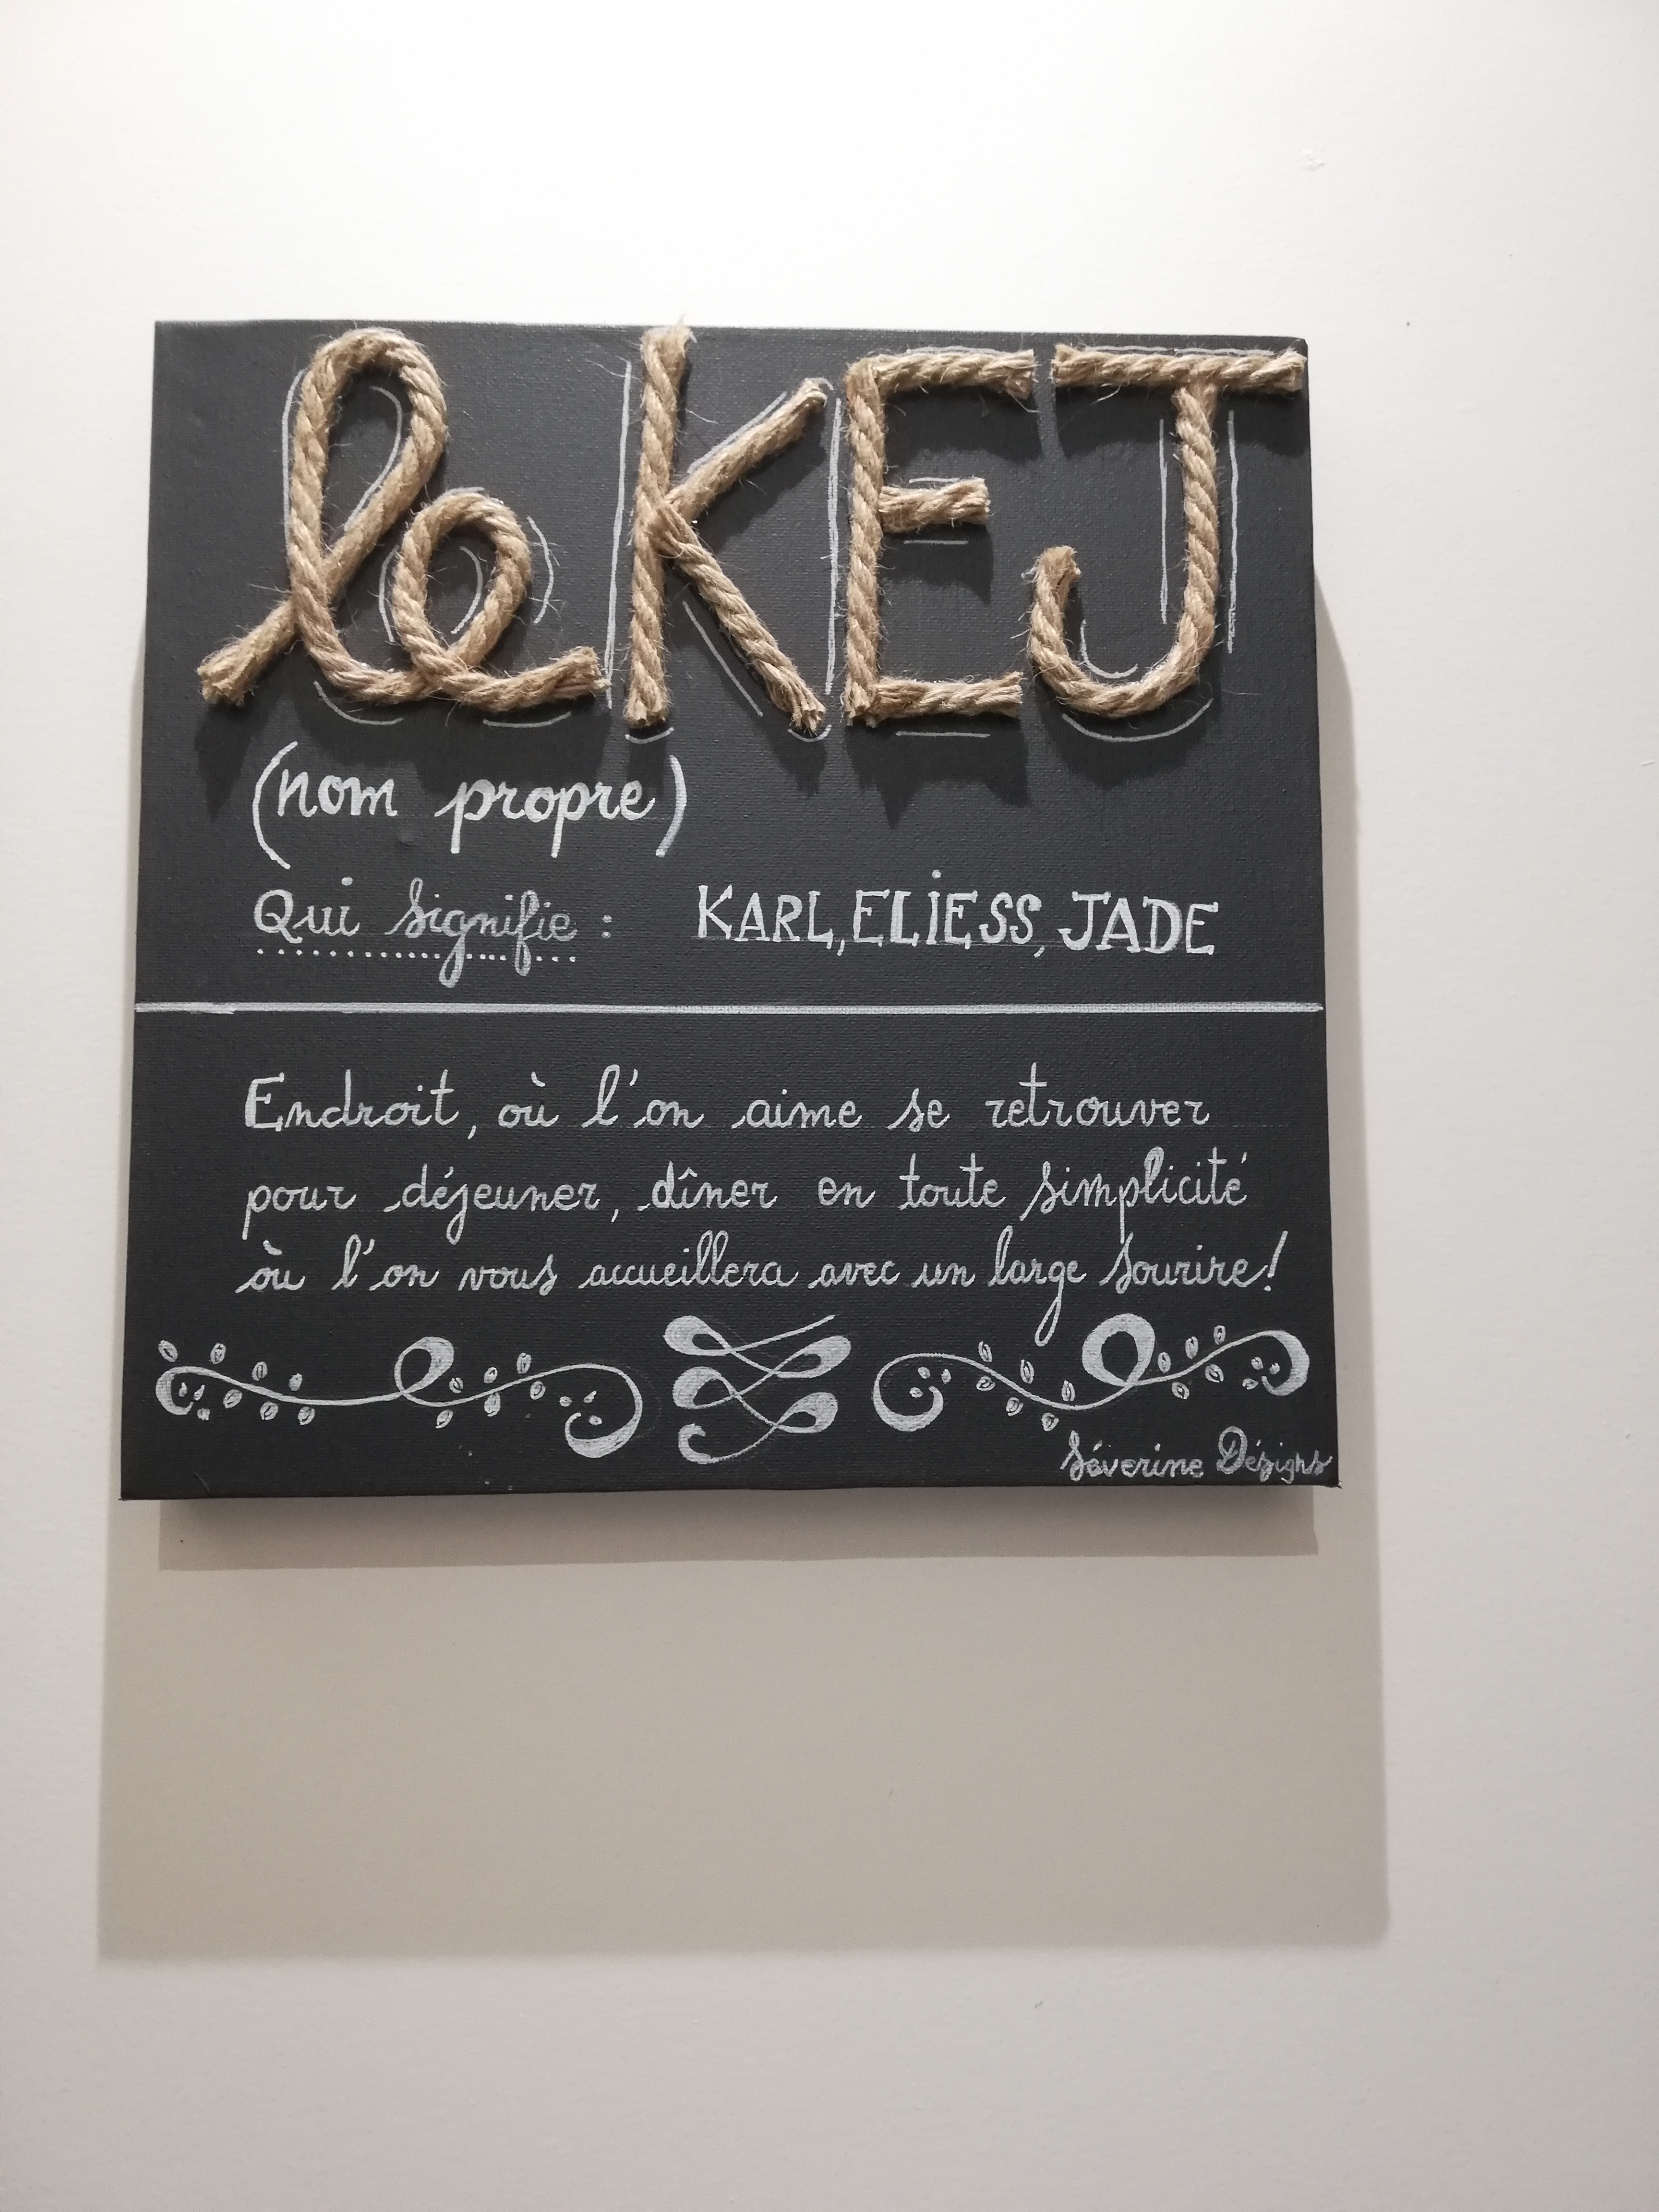 le KEJ
(nom propre)
Qui signifie : KARL, ELIESS, JADE
Endroit, où l'on aime se retrouver
pour déjeuner, dîner en toute simplicité
où l'on vous accueillera avec un large sourire!
Séverine Désigns